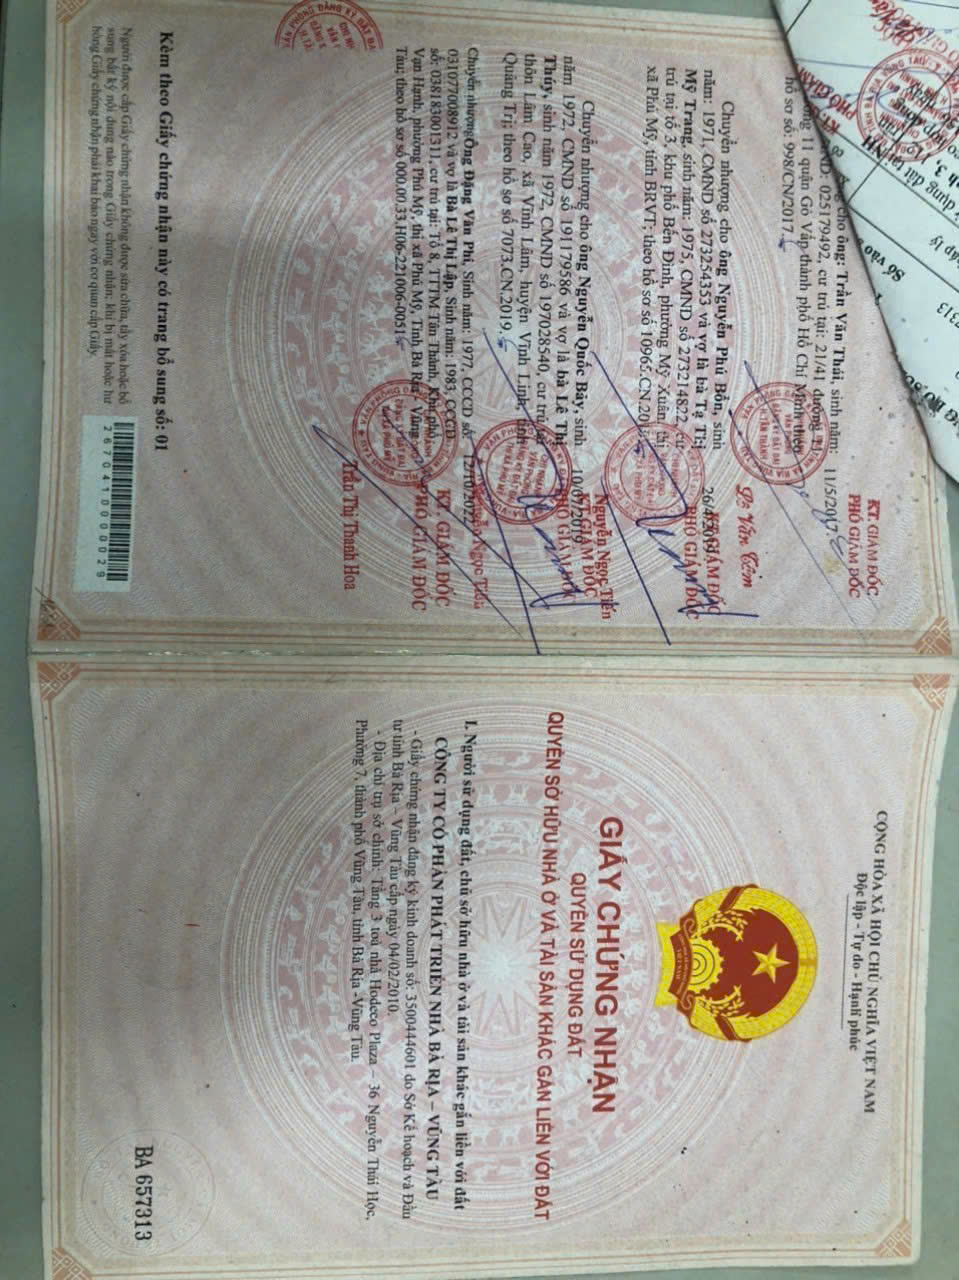 CỘNG HÒA XÃ HỘI CHỦ NGHĨA VIỆT NAM
Độc lập - Tự do - Hạnh phúc
GIẤY CHỨNG NHẬN
QUYỀN SỬ DỤNG ĐẤT
QUYỀN SỞ HỮU NHÀ Ở VÀ TÀI SẢN KHÁC GẮN LIỀN VỚI ĐẤT
I. Người sử dụng đất, chủ sở hữu nhà ở và tài sản khác gắn liền với đất
CÔNG TY CỔ PHẦN PHÁT TRIỂN NHÀ BÀ RỊA – VŨNG TÀU
- Giấy chứng nhận đăng ký kinh doanh số: 3500444601 do Sở Kế hoạch và Đầu
tư tỉnh Bà Rịa – Vũng Tàu cấp ngày 04/02/2010.
- Địa chỉ trụ sở chính: Tầng 3 toà nhà Hodeco Plaza – 36 Nguyễn Thái Học,
Phường 7, thành phố Vũng Tàu, tỉnh Bà Rịa -Vũng Tàu.
BA 657313
KT. GIÁM ĐỐC
PHÓ GIÁM ĐỐC
cho ông: Trần Văn Thái, sinh năm:
025179492, cư trú tại: 21/41 đường
11 quận Gò Vấp thành phố Hồ Chí Minh theo
hồ sơ số: 998/CN/2017.
11/5/2017
Lê Văn
Chuyển nhượng cho ông Nguyễn Phú Bổn, sinh
năm: 1971, CMND số 273254353 và vợ là bà Tạ Thị
Mỹ Trang, sinh năm: 1975, CMND số 273214822, cư
trú tại tổ 3, khu phố Bến Đình, phường Mỹ Xuân, thị
xã Phú Mỹ, tỉnh BRVT; theo hồ sơ số 10965.CN.20
GIÁM ĐỐC
PHÓ GIÁM ĐỐC
Nguyễn Ngọc Tiến
Chuyển nhượng cho ông Nguyễn Quốc Bảy, sinh
năm 1972, CMND số 191179586 và vợ là bà Lê Thị
Thủy, sinh năm 1972, CMND số 197028540, cư trú
thôn Lâm Cao, xã Vĩnh Lâm, huyện Vĩnh Linh, tỉnh
Quảng Trị; theo hồ sơ số 7073.CN.2019.
10/07/2019
GIÁM ĐỐC
PHÓ GIÁM ĐỐC
Nguyễn Ngọc Tiến
Chuyển nhượng Ông Đặng Văn Phi, Sinh năm: 1977, CCCD số:
031077008912 và vợ là Bà Lê Thị Lập, Sinh năm: 1983, CCCD
số: 038183001511, cư trú tại: Tổ 8, TTTM Tân Thành, Khu phố
Vạn Hạnh, phường Phú Mỹ, thị xã Phú Mỹ, Tỉnh Bà Rịa - Vũng
Tàu; theo hồ sơ số 000.00.33.H06-221006-0051.
12/10/2022
KT. GIÁM ĐỐC
PHÓ GIÁM ĐỐC
Trần Thị Thanh Hoa
Kèm theo Giấy chứng nhận này có trang bổ sung số: 01
Người được cấp Giấy chứng nhận không được sửa chữa, tẩy xóa hoặc bổ
sung bất kỳ nội dung nào trong Giấy chứng nhận; khi bị mất hoặc hư
hỏng Giấy chứng nhận phải khai báo ngay với cơ quan cấp Giấy.
2670410000029